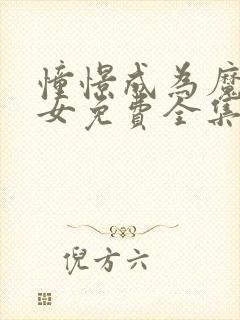 憧憬成为魔
女免费全集
倪方六